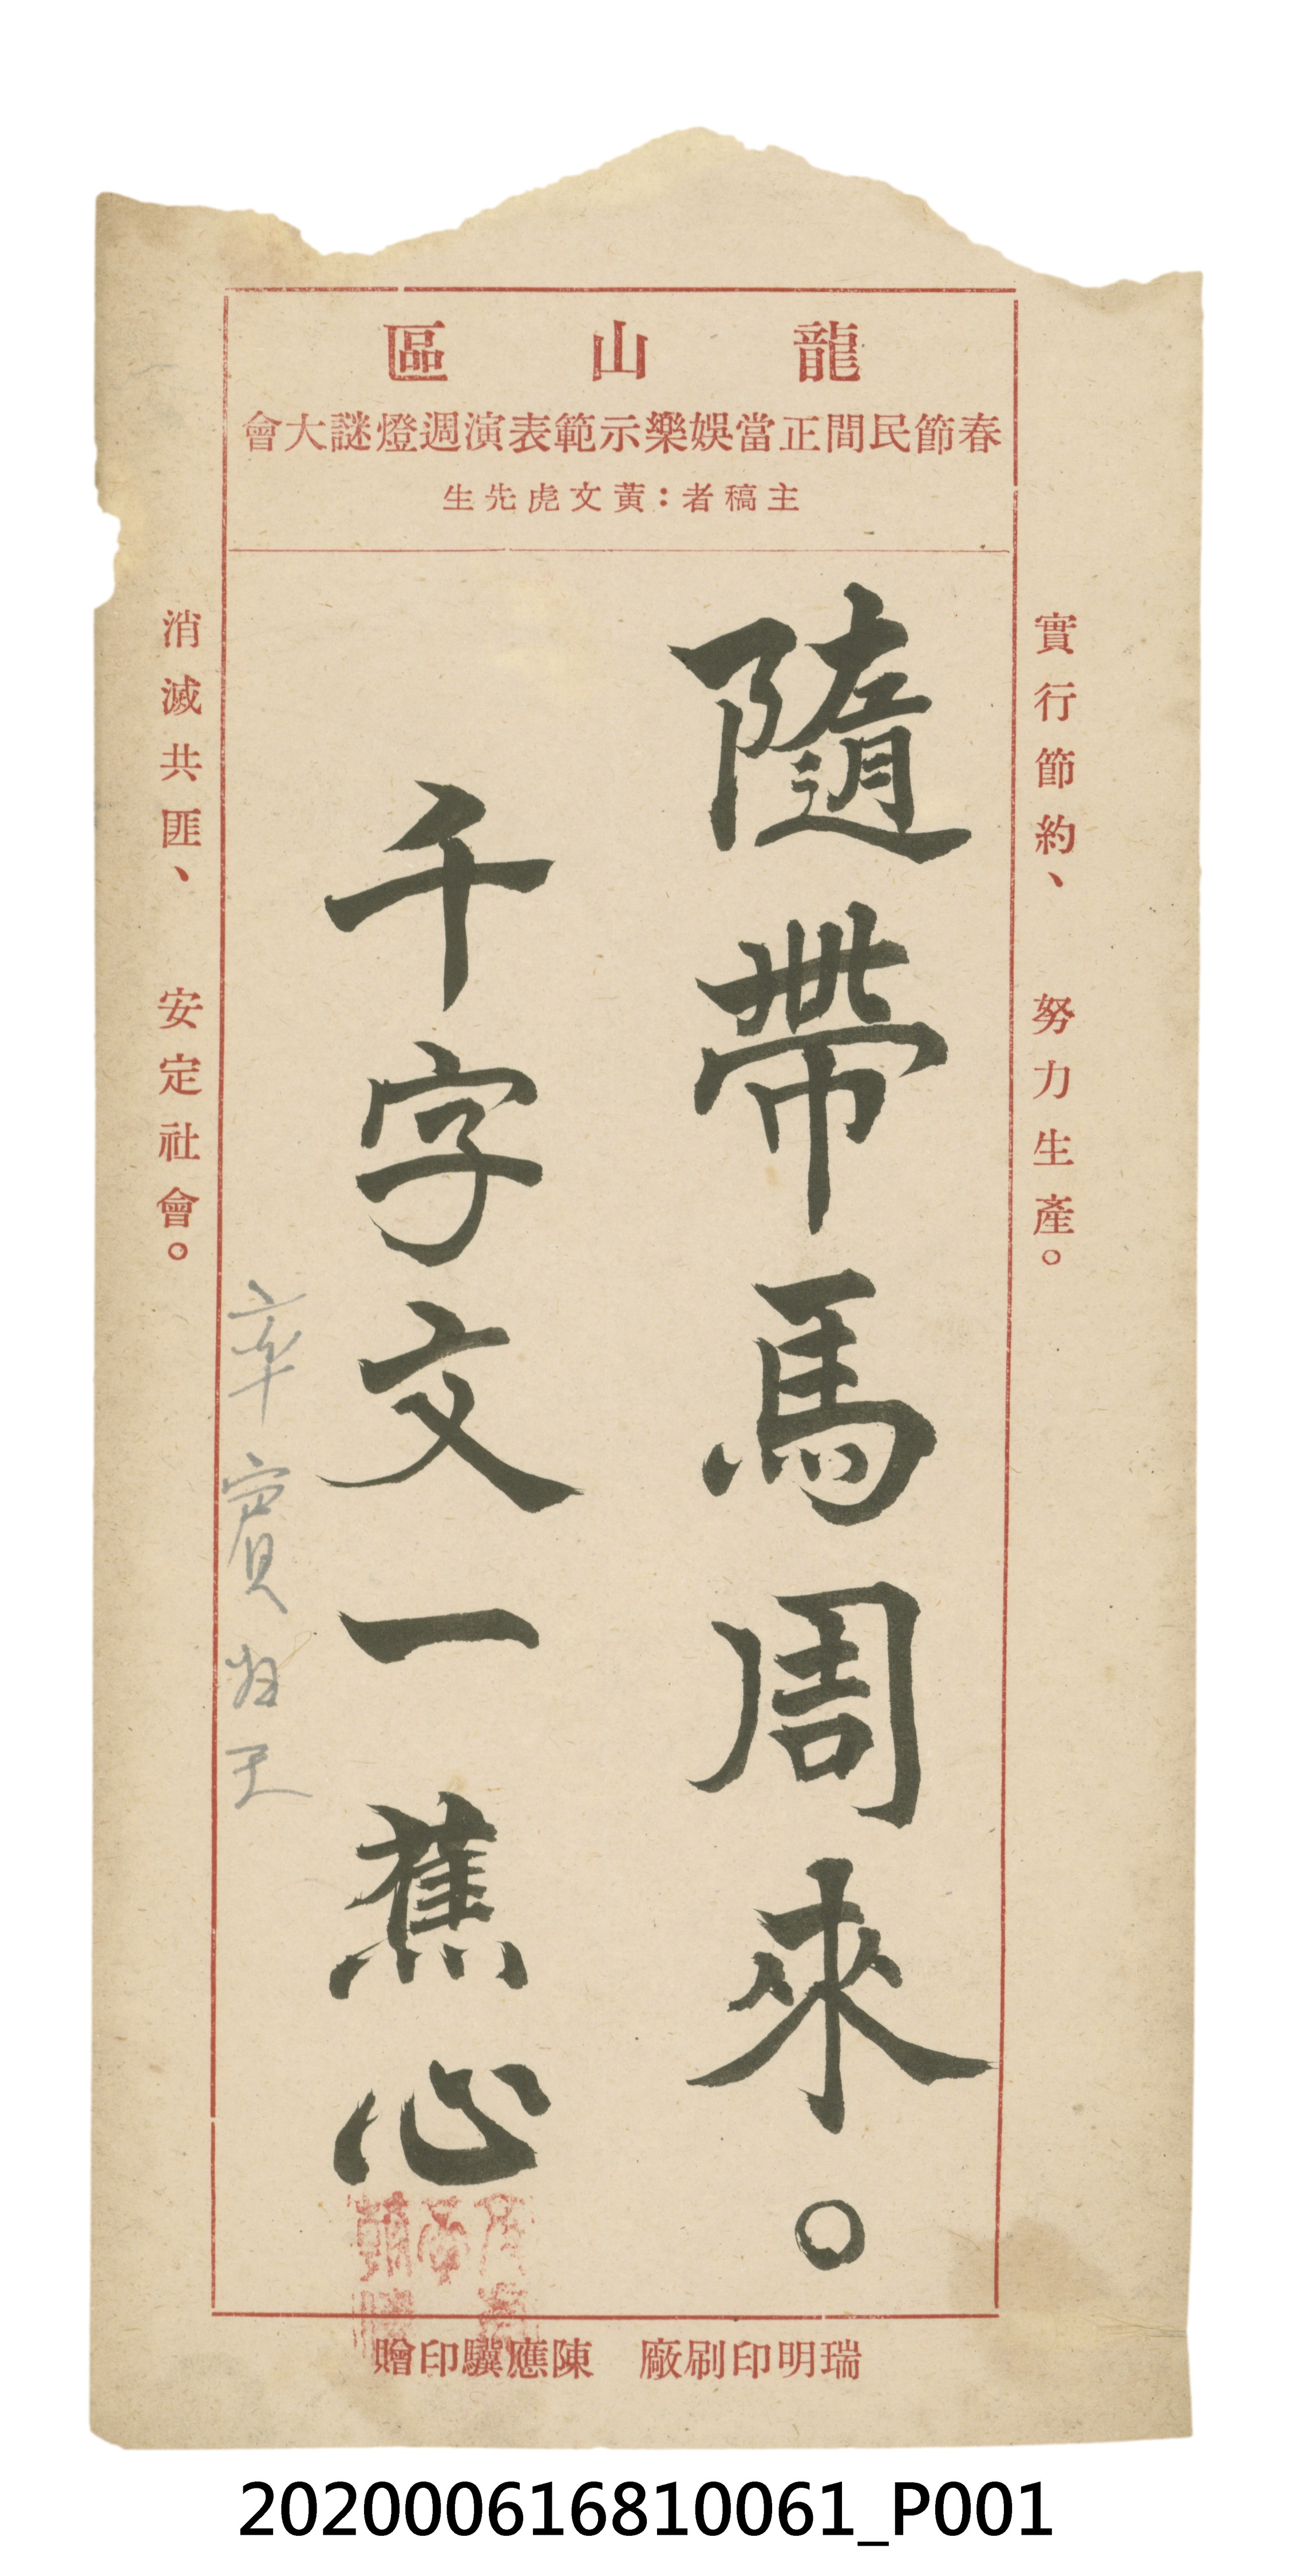 龍山區
春節民間正當娛樂示範表演週燈謎大會
主稿者：黃文虎先生
實行節約、努力生產。
隨帶馬周來。
千字文一蕉心
率賓歸王
消滅共匪、安定社會。
瑞明印刷廠 陳應驥印贈
202000616810061_P001